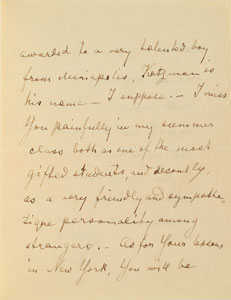 awarded to a very talented boy
from Minneapolis, Katzman is
his name — I suppose. — I miss
You painfully in my summer
class both as one of the most
gifted students, and secondly,
as a very friendly and sympathe-
tique personality among
strangers. — As for Your lessons
in New York, You will be